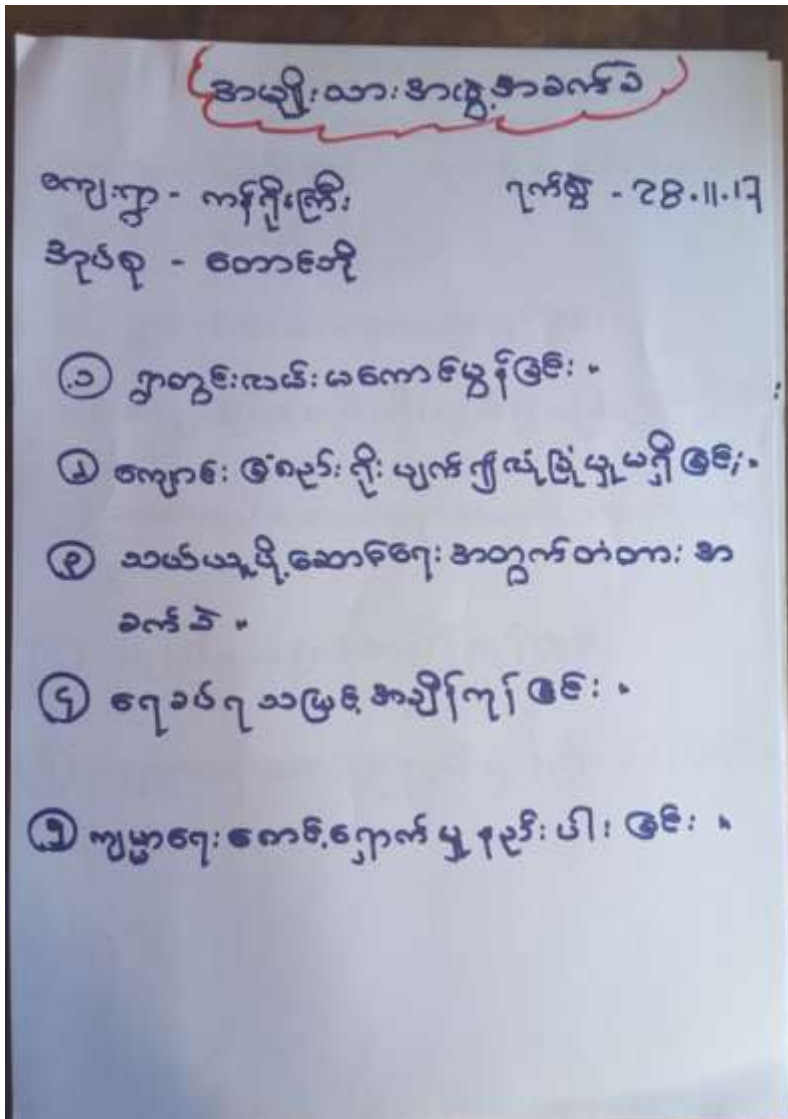 အမျိုးသားအဖွဲ့အခက်ခဲ
ကျေးရွာ - ကန်ရိုးကြီး ရက်စွဲ - 28.11.17
အုပ်စု - တောင်ဘို
၁ ရွာတွင်းလမ်းမကောင်မွန်ခြင်း။
၂ ကျောင်းခြံစည်းရိုးပျက်၍လုံခြုံမှုမရှိခြင်း။
၃ သယ်ယူပို့ဆောင်ရေးအတွက်တံတားအ
ခက်ခဲ။
၄ ရေခပ်ရသဖြင့်အချိန်ကုန်ခြင်း။
၅ ကျမ္မာရေးစောင့်ရှောက်မှုနည်းပါးခြင်း။